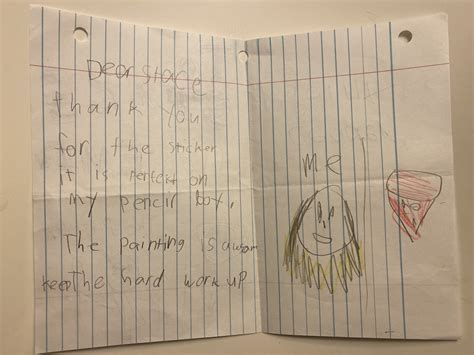 Dear stace
thank you
for the sticker
it is perfect on
my pencil box.
The painting is awsom
keep the hard work up
me